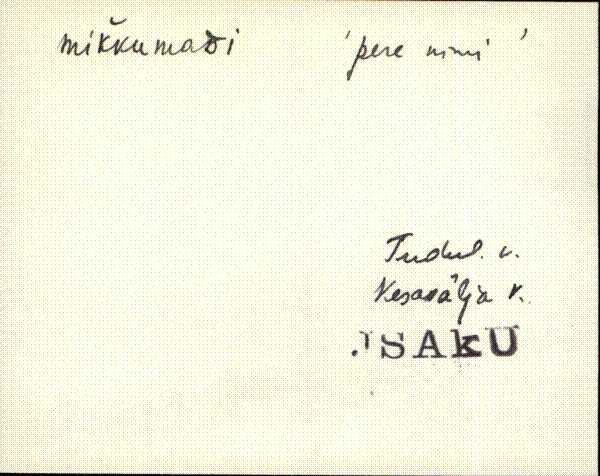 mikkumaᴢi 'pere nimi'
Tudul. v.
Kesasälja k.
IISAKU